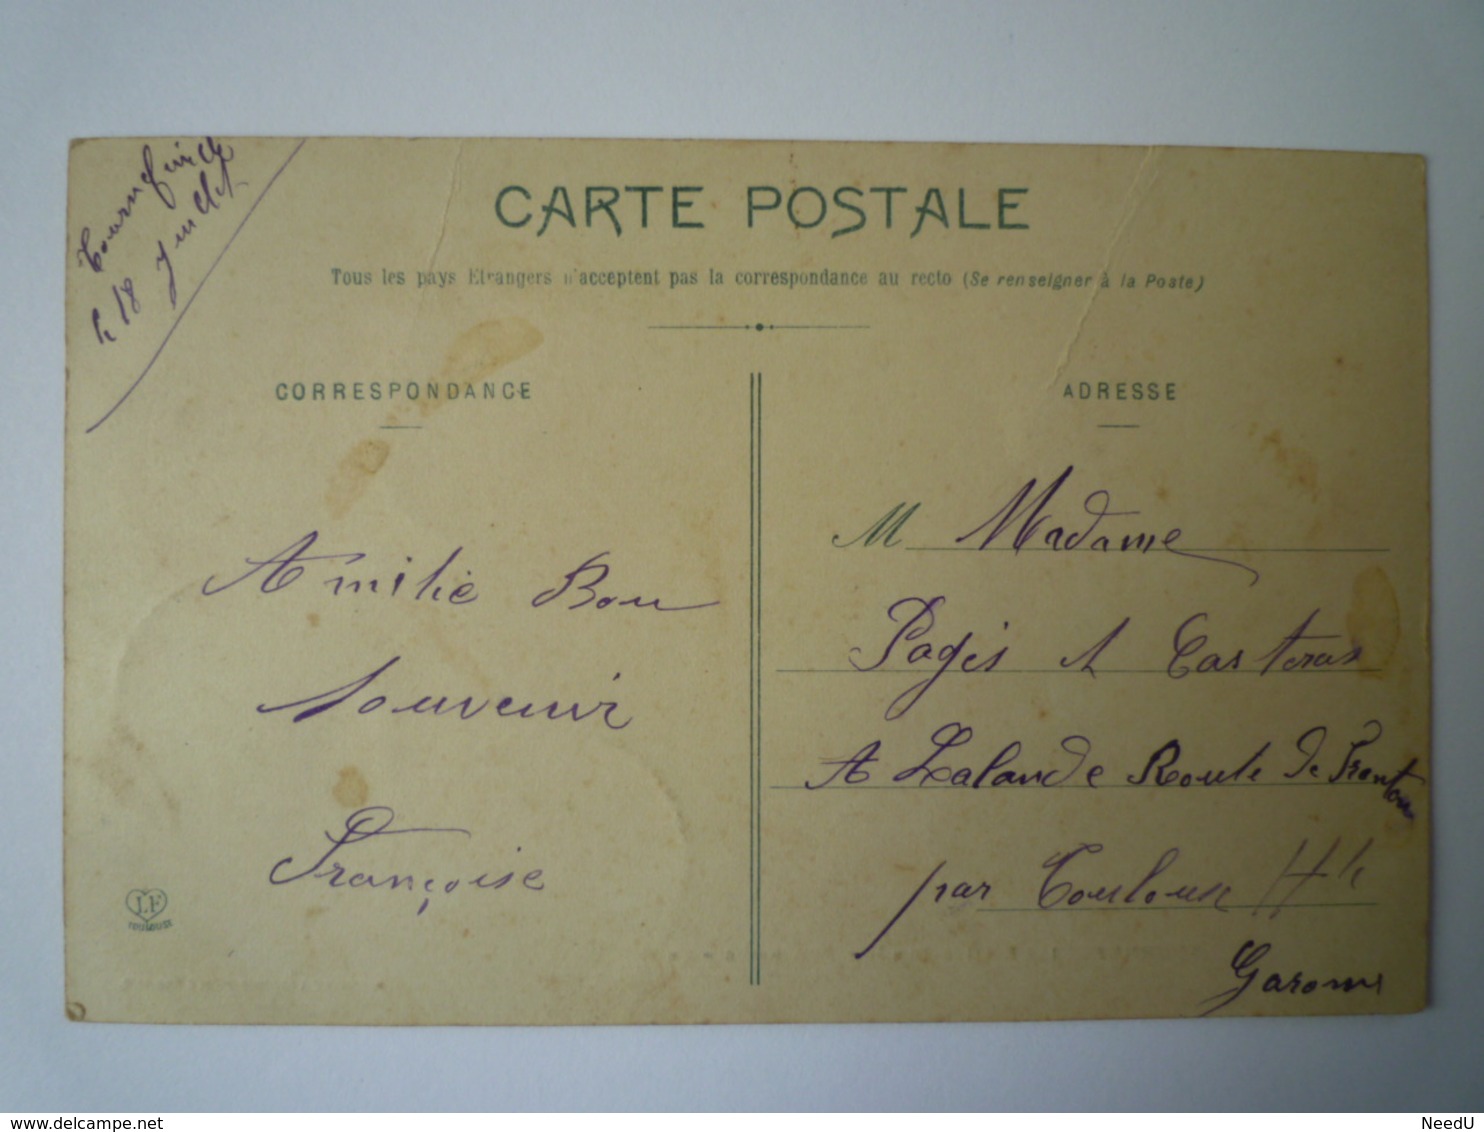 Tournefeuille
le 18 Juillet
CARTE POSTALE
Tous les pays Etrangers n'acceptent pas la correspondance au recto (Se renseigner à la Poste)
CORRESPONDANCE
ADRESSE
Amitié Bon
souvenir
Françoise
M Madame
Pagès et Casteras
A Lalande Route de Fronton
par Toulouse Hte
Garonne
LF
TOULOUSE
www.delcampe.net
NeedU